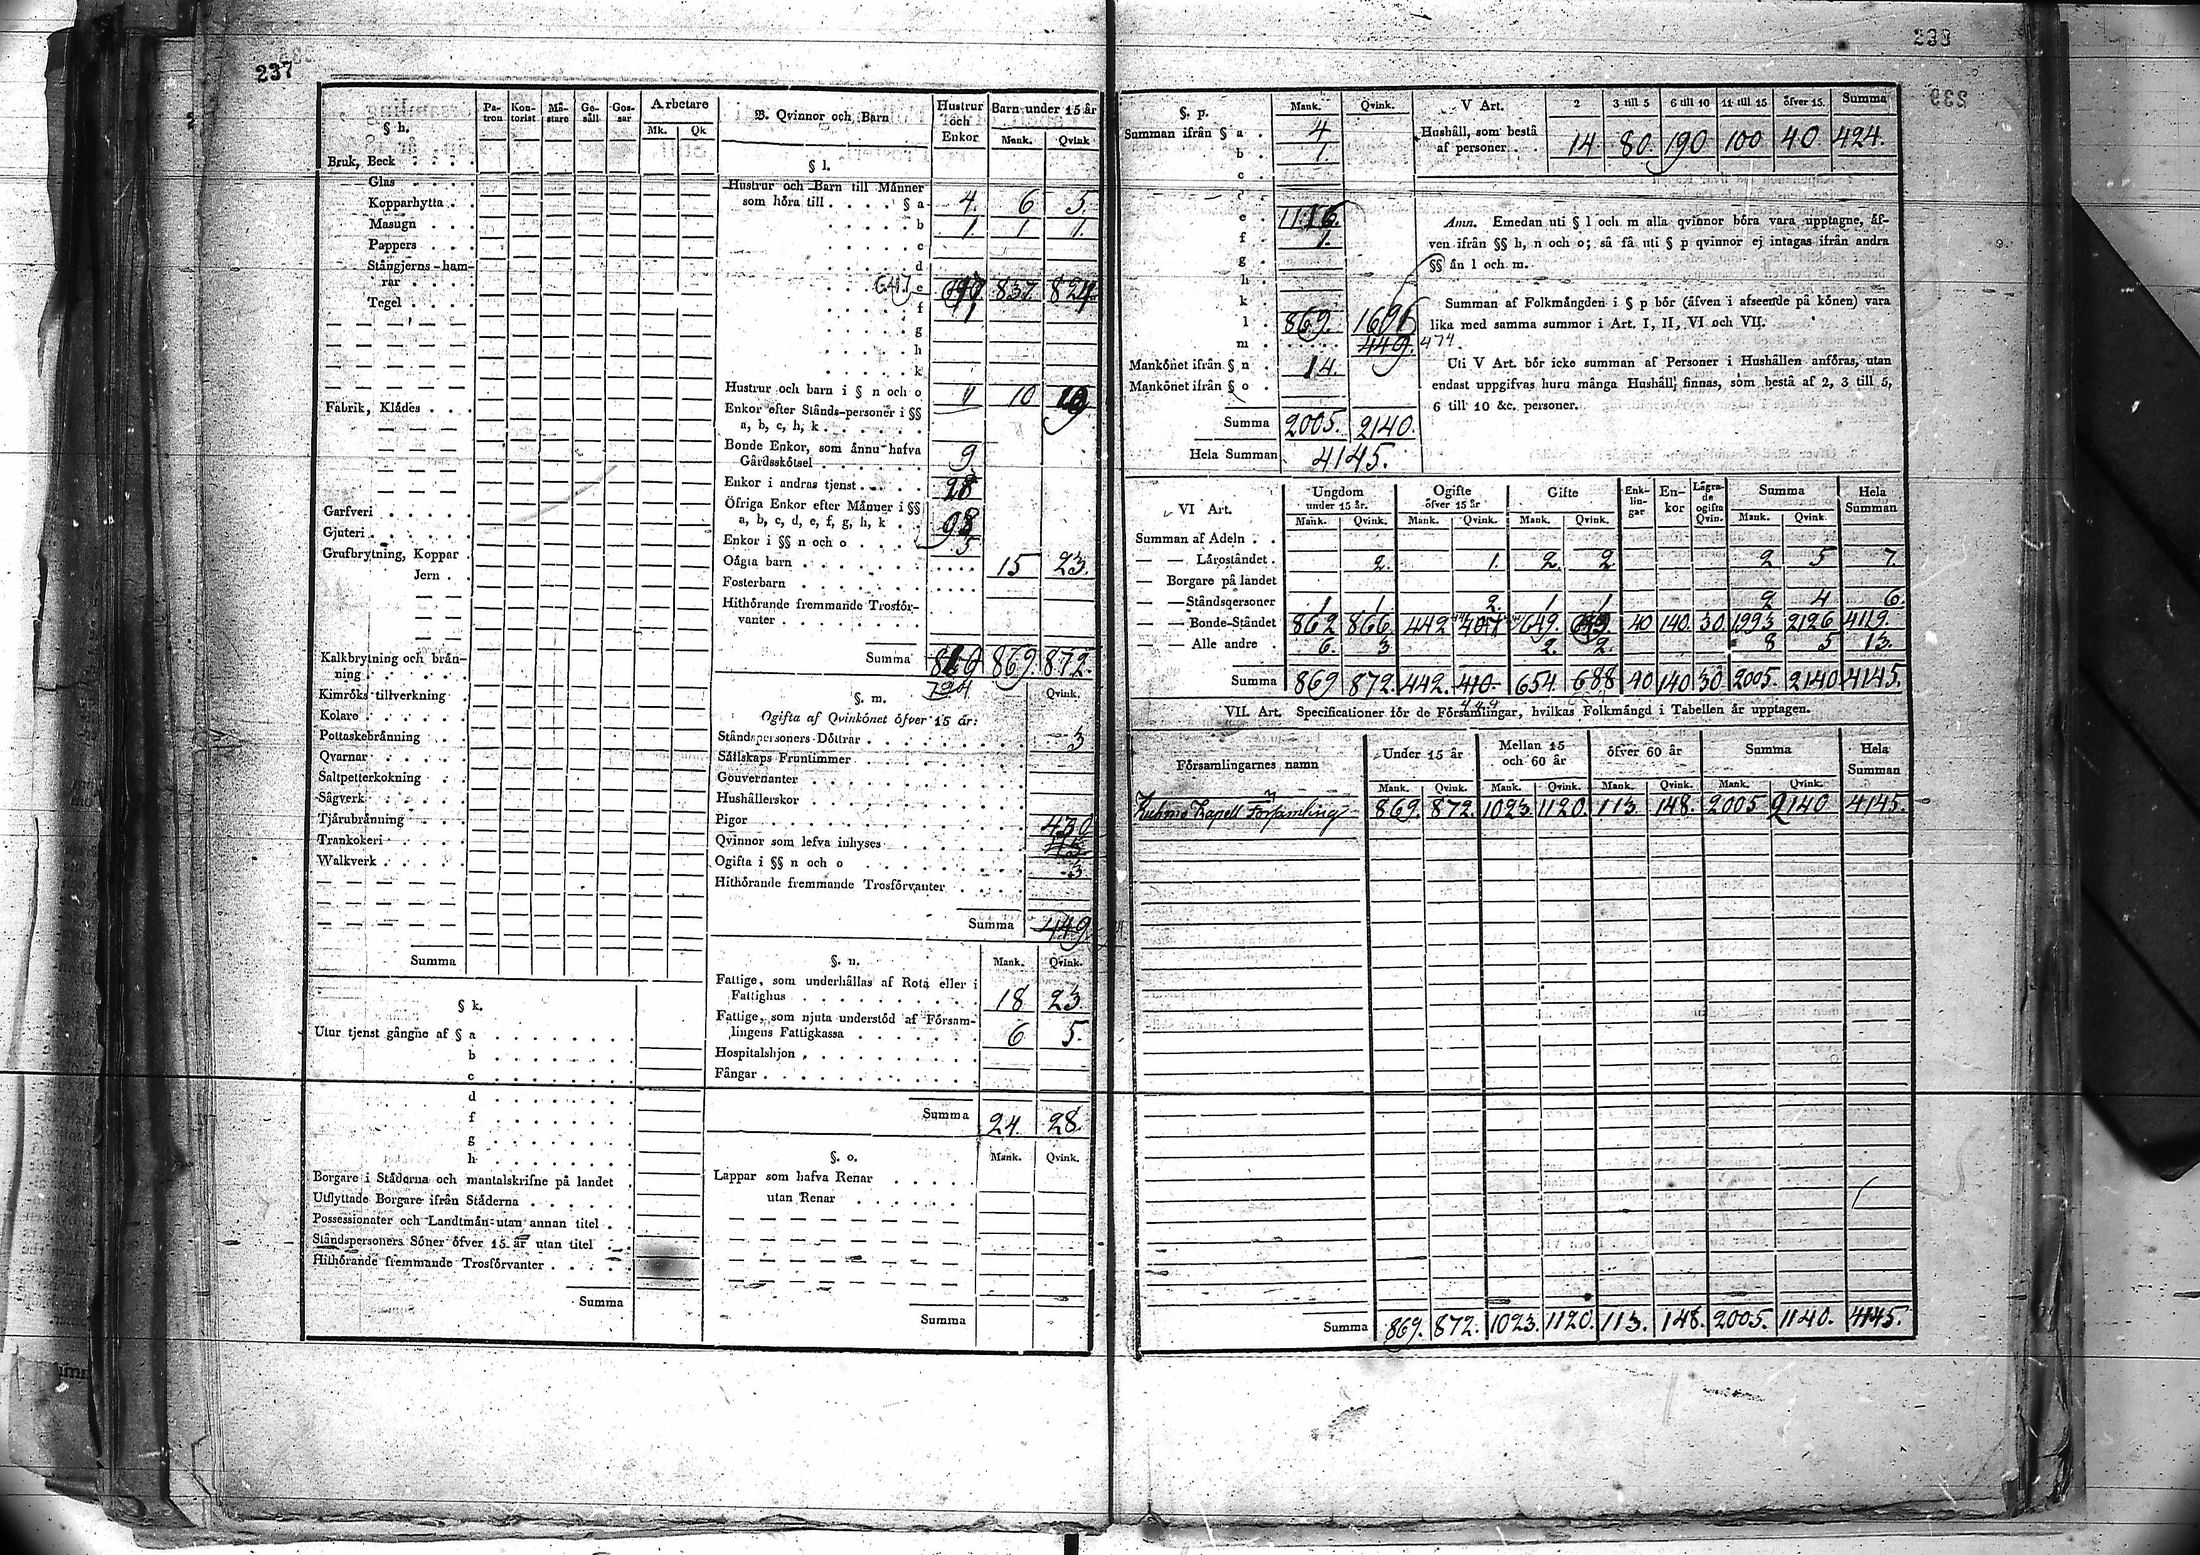 237
§ h.
Pa-tron Kon-torist Mä-stare Ge-säll Gos-sar Arbetare
Mk. Qk
Bruk, Beck
Glas
Kopparhytta
Masugn
Pappers
Stångjerns-ham-
rar
Tegel
Fabrik, Klädes
Garfveri
Gjuteri
Grufbrytning, Koppar
Jern
Kalkbrytning och brän-
ning
Kimröks tillverkning
Kolare
Pottaskebränning
Qvarnar
Saltpetterkokning
Sågverk
Tjärubränning
Trankokeri
Walkverk
Summa
§ k.
Utur tjenst gångne af § a
b
c
d
f
g
h
Borgare i Städerna och mantalskrifne på landet
Utflyttade Borgare ifrån Städerna
Possessionater och Landtmän utan annan titel
Ståndspersoners Söner öfver 15 år utan titel
Hithörande fremmande Trosförvanter
Summa
B. Qvinnor och Barn
Hustrur och Enkor
Barn under 15 år
Mank. Qvink
§ l.
Hustrur och Barn till Männer
som höra till § a 4. 6 5.
b 1. 1 1.
c
d
e 647 837. 824
f 1
g
h
k
Hustrur och barn i § n och o 11 10 19
Enkor efter Stånds-personer i §§
a, b, c, h, k
Bonde Enkor, som ännu hafva
Gårdsskötsel 9.
Enkor i andras tjenst 28
Öfriga Enkor efter Männer i §§
a, b, c, d, e, f, g, h, k 98
Enkor i §§ n och o 5
Oägta barn 15 23.
Fosterbarn
Hithörande fremmande Trosför-
vanter
Summa 869. 872.
794
§. m. Qvink.
Ogifta af Qvinkönet öfver 15 år:
Ståndspersoners Döttrar 3
Sällskaps Fruntimmer
Gouvernanter
Hushållerskor
Pigor 430
Qvinnor som lefva inhyses
Ogifta i §§ n och o 3
Hithörande fremmande Trosförvanter
Summa 449
§. n. Mank. Qvink.
Fattige, som underhållas af Rota eller i
Fattighus 18 23
Fattige, som njuta understöd af Försam-
lingens Fattigkassa 6 5.
Hospitalshjon
Fångar
Summa 24. 28.
§. o. Mank. Qvink.
Lappar som hafva Renar
utan Renar
Summa
239
§. p. Mank. Qvink.
Summan ifrån § a 4
b 1.
c
e 1116.
f 1.
g
h
k
l 869. 1696
m 449. 474.
Mankönet ifrån § n 14.
Mankönet ifrån § o
Summa 2005. 2140.
Hela Summan 4145.
V Art. 2 3 till 5 6 till 10 11 till 15 öfver 15. Summa
Hushåll, som bestå
af personer 14 80 190 100 40 424.
Anm. Emedan uti § l och m alla qvinnor böra vara upptagne, äf-
ven ifrån §§ h, n och o; så få uti § p qvinnor ej intagas ifrån andra
§§ än l och m.
Summan af Folkmängden i § p bör (äfven i afseende på könen) vara
lika med samma summor i Art. I, II, VI och VII.
Uti V Art. bör icke summan af Personer i Hushållen anföras, utan
endast uppgifvas huru många Hushåll finnas, som bestå af 2, 3 till 5,
6 till 10 &c. personer.
VI Art. Ungdom under 15 år. Ogifte öfver 15 år Gifte Enk-lin-gar En-kor Lägra-de ogifta Qvin. Summa Hela Summan
Mank. Qvink. Mank. Qvink. Mank. Qvink. Mank. Qvink.
Summan af Adeln
— — Läroståndet 2. 1. 2 2 2 5 7.
— Borgare på landet
— — Ståndspersoner 1 1 2. 1 1 2 4 6.
— — Bonde-Ståndet 862 866 442 649. 40 140. 30 1993 2126 4119.
— — Alle andre 6. 3 2. 2. 8 5 13.
Summa 869 872. 442. 410. 654. 688 40 140 30 2005. 2140 4145.
444
VII. Art. Specificationer för de Församlingar, hvilkas Folkmängd i Tabellen är upptagen.
Församlingarnes namn Under 15 år Mellan 15 och 60 år öfver 60 år Summa Hela Summan
Mank. Qvink. Mank. Qvink. Mank. Qvink. Mank. Qvink.
Kuhmo Kapell Församling 869. 872. 1023. 1120. 113. 148. 2005 2140 4145.
Summa 869. 872. 1023. 1120. 113. 148. 2005. 1140. 4145.